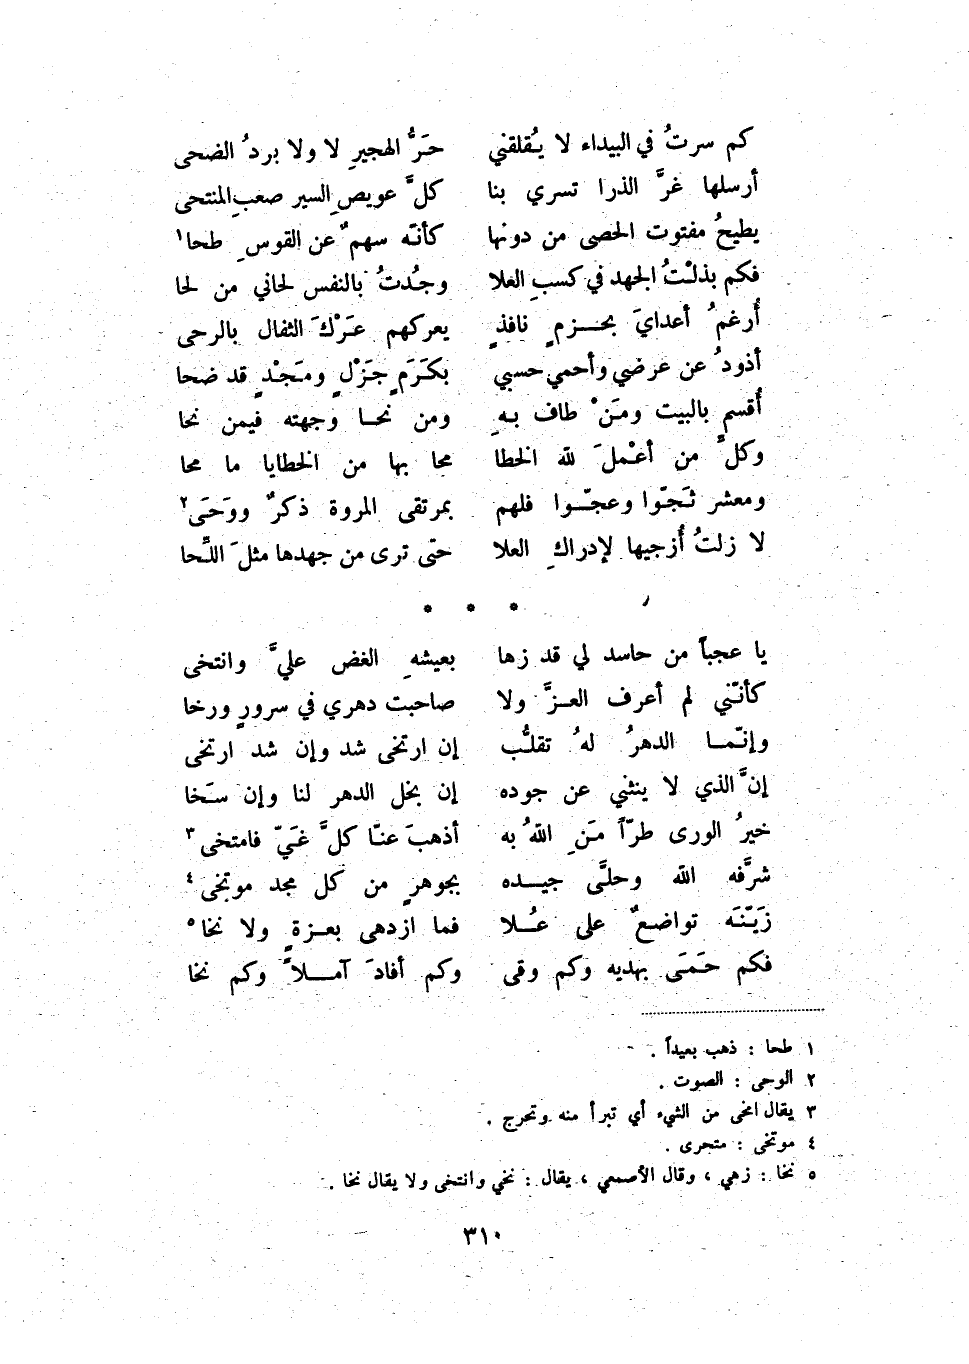 كم سرتُ في البيداء لا يُقلقني حَرُّ الهجيرِ لا ولا بردُ الضحى
أرسلها غرَّ الذرا تسري بنا كلَّ عويصِ السير صعبِ المنتحى
يطيحُ مفتوت الحصى من دونها كأنّه سهمٌ عن القوسِ طحا١
فكم بذلتُ الجهد في كسبِ العلا وجُدتُ بالنفس لحاني من لحا
أُرغمُ أعدايَ بحزمٍ نافذٍ يعركهم عَرْكَ الثفال بالرحى
أذودُ عن عرضي وأحمي حسبي بكَرَمٍ جَزْلٍ ومَجْدٍ قد ضحا
أُقسم بالبيت ومَنْ طاف بهِ ومن نحا وجهته فيمن نحا
وكلِّ من أعْملَ لله الخطا محا بها من الخطايا ما محا
ومعشر ثَجّوا وعجّوا فلهم بمرتقى المروة ذكرٌ ووَحَى٢
لا زلتُ أُزجيها لإدراكِ العلا حتى ترى من جهدها مثلَ اللِّحا
* * *
يا عجباً من حاسد لي قد زها بعيشهِ الغض عليَّ وانتخى
كأنّني لم أعرف العزَّ ولا صاحبت دهري في سرورٍ ورخا
وإنّما الدهرُ لهُ تقلُّب إن ارتخى شد وإن شد ارتخى
إنَّ الذي لا ينثني عن جوده إن بخل الدهر لنا وإن سَخا
خيرُ الورى طرّاً مَنِ اللهُ به أذهبَ عنّا كلَّ غَيّ فامتخى٣
شرَّفه الله وحلَّى جيده بجوهرٍ من كل مجد موتخى٤
زَيّنَه تواضعٌ على عُلا فما ازدهى بعزةٍ ولا نخا٥
فكم حَمَى بهديه وكم وقى وكم أفادَ آملاً وكم نخا
١ طحا : ذهب بعيداً .
٢ الوحى : الصوت .
٣ يقال امخى من الشيء أي تبرأ منه وتحرج .
٤ موتخى : متحرى .
٥ نخا : زهي ، وقال الأصمعي ، يقال : نخي وانتخى ولا يقال نخا .
٣١٠